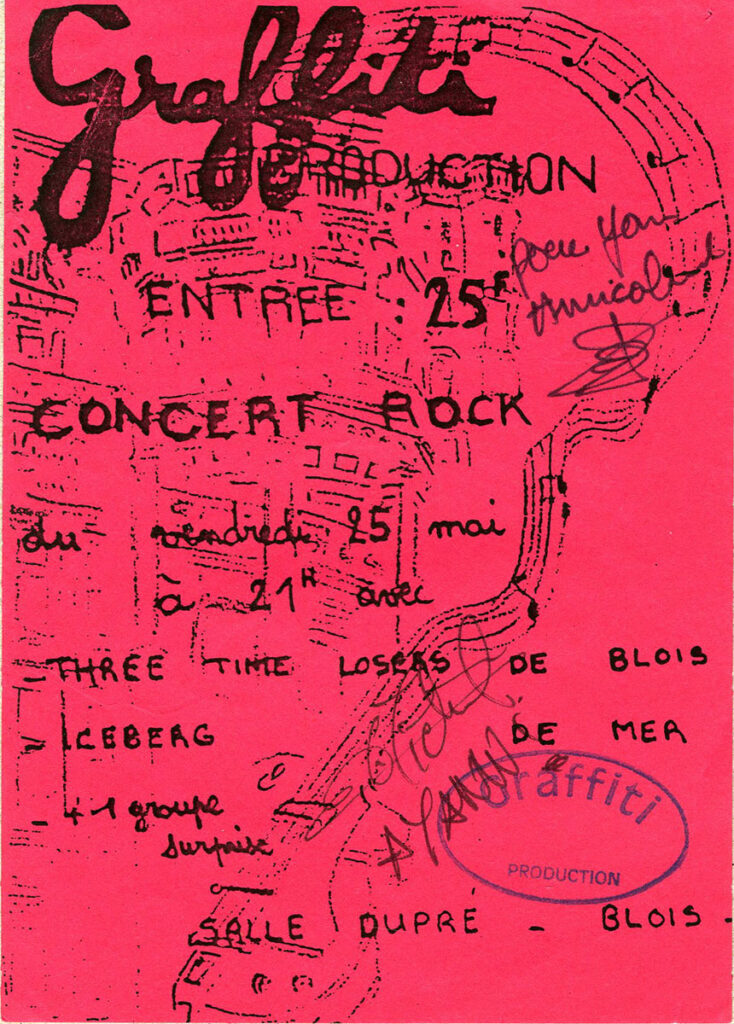 Graffiti
PRODUCTION
ENTREE : 25F
pour Yann
CONCERT ROCK
du vendredi 25 mai
à 21H avec
- THREE TIME LOSERS DE BLOIS
- ICEBERG DE MER
- + 1 groupe
surprise
A YANN
Graffiti
PRODUCTION
SALLE DUPRÉ - BLOIS -